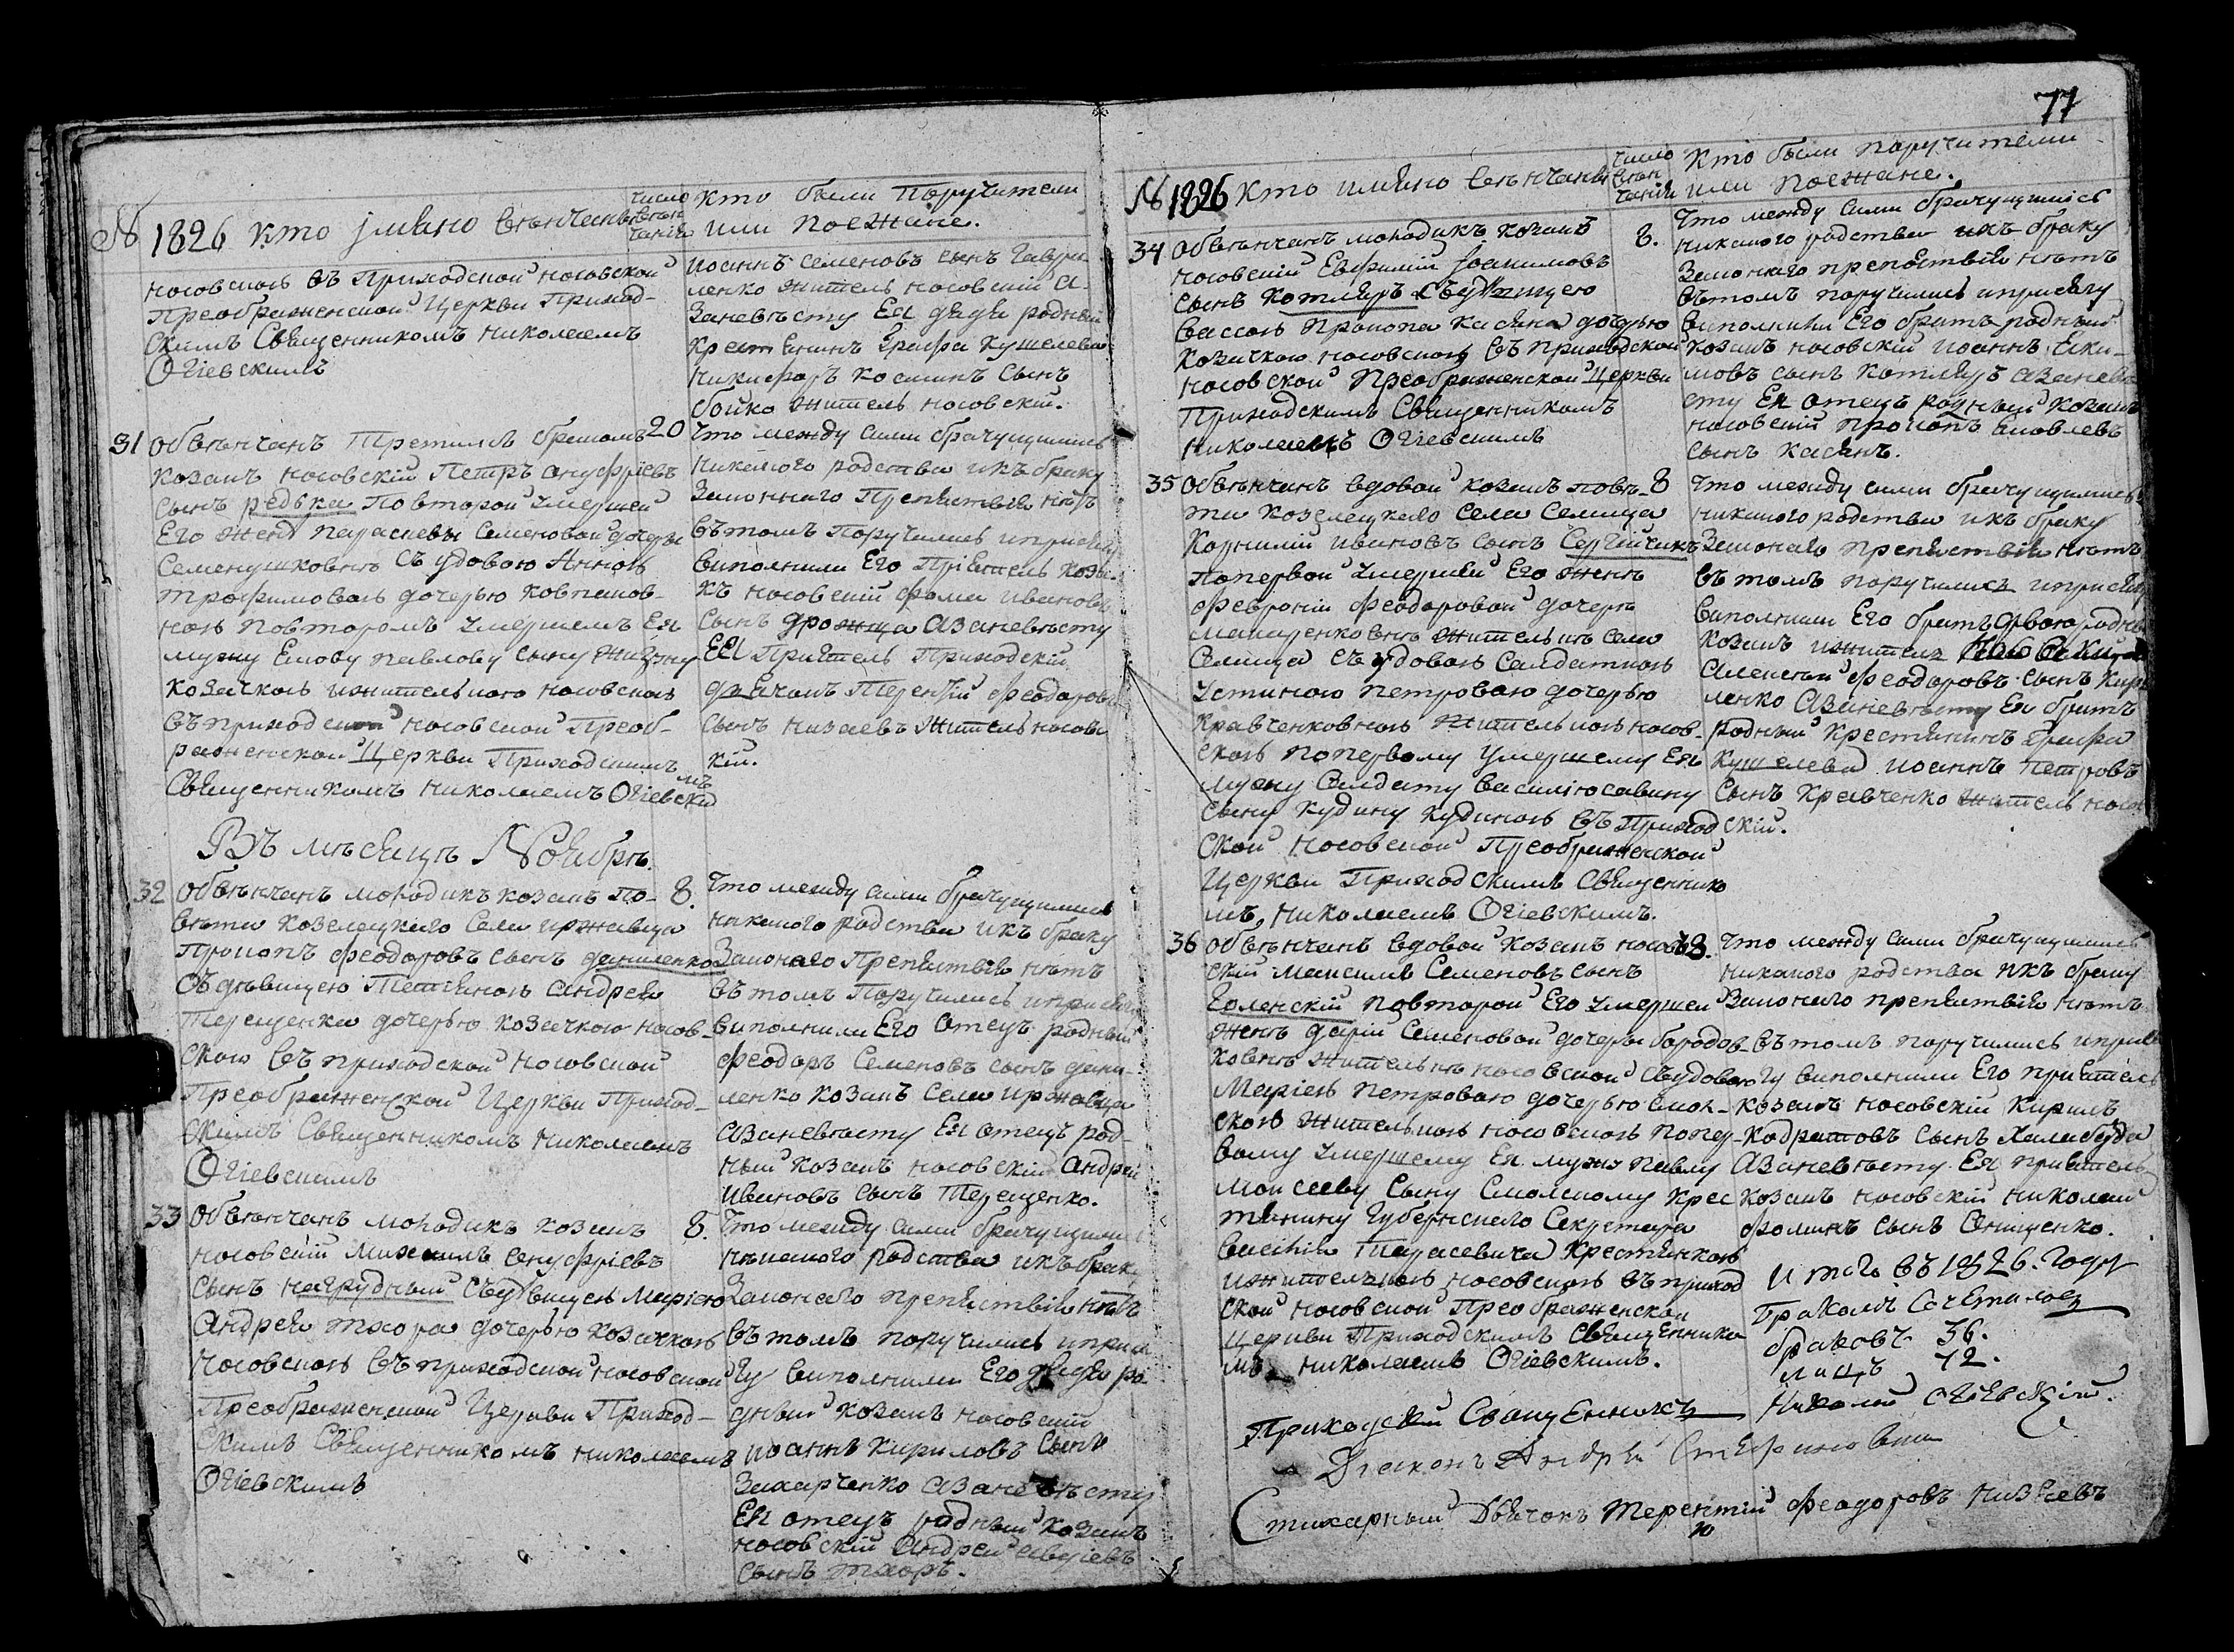 № 1826 кто імѣно вѣнчаны
число вѣнчанія
кто были поручители
или поезжане.
носовскою въ Приходской носовской
Преображенской Церкви Приход-
скимъ Священникомъ Николаемъ
Огіевскимъ
иоаннъ семеновъ сынъ Гаври-
ленко житель носовскій а
заневѣсту Ея дядя родный
крестянинъ Графа Кушелева
никифоръ косминъ сынъ
бойко житель носовскій.
31 обвѣнчанъ третимъ бракомъ 20
козакъ носовскій Петръ онуфріевъ
сынъ редька По второй умершей
Его женѣ параскевѣ семеновой дочери
семенушковнѣ съ удовою Анною
трофимовою дочерью ковпанов-
ною по второмъ умершемъ Ея
мужу павлову сыну
козачкою жителькою носовскою
въ приходской носовской Преоб-
раженской Церкви Приходскимъ
Священникомъ Николаемъ Огіевскимъ
что между сими брачущимися
никакого родства ихъ браку
законнаго Препятствія нѣтъ
въ томъ Поручились и присягу
виполнили Его Пріятель коза-
къ носовскій фома ивановъ
сынъ дрожжа а заневѣсту
Ея Пріятель Приходскій
дьячокъ Терентій феодоровъ
сынъ низаевъ житель носовс-
кій.
Въ мѣсяцѣ Ноябрѣ.
32 обвѣнчанъ молодикъ козакъ по- 8.
вѣта козелецкаго села иржавца
Прокопъ феодоровъ сынъ даниленко
съ дѣвицею Татіяною Андрея
Терещенка дочерью козачкою носов-
скою въ приходской носовской
Преображенской Церкви Приход-
скимъ Священникомъ Николаемъ
Огіевскимъ
что между сими брачущимися
никакого родства ихъ браку
Законаго Препятствія нѣтъ
въ томъ Поручились и присягу
виполнили Его отецъ родный
феодоръ семеновъ сынъ дани-
ленко козакъ села иржавца
а заневѣсту Ея отецъ род-
ный козакъ носовскій Андрей
ивановъ сынъ Терещенко.
33 обвѣнчанъ молодикъ козакъ 8.
носовскій михаилъ онуфріевъ
сынъ нагрудный съ дѣвицею маріею
Андрея тхора дочерью козачкою
носовскою въ приходской носовской
Преображенской Церкви Приход-
скимъ Священникомъ Николаемъ
Огіевскимъ
что между сими брачущимися
никакого родства ихъ браку
Законаго препятствія нѣтъ
въ томъ поручились и прися-
гу виполнили Его дядя ро-
дный козакъ носовскій
иоаннъ кириловъ сынъ
Захарченко а заневѣсту
Ея отецъ родный козакъ
носовскій Андрей
сынъ тхоръ.
77
№ 1826 кто имѣно вѣнчаны
число вѣнчанія
кто были поручители
или поезжане.
34 обвѣнчанъ молодикъ козакъ 8.
носовскій Евфимій Іоакимовъ
сынъ котляръ съ дѣвицею
Вассою Прокопа касяна дочерью
козачкою носовскою въ приходской
носовской Преображенской Церкви
Приходскимъ Священникомъ
николаемъ Огіевскимъ
что между сими брачущимись
никакого родства ихъ браку
Законаго препятствія нѣтъ
въ томъ поручились и присягу
виполнили Его братъ родный
козакъ носовскій иоаннъ яки-
мовъ сынъ котляръ а заневѣ-
сту Ея отецъ родный козакъ
носовскій прокопъ яковлевъ
сынъ касянъ.
35 обвѣнчанъ вдовой козакъ повѣ- 8
та козелецкаго села селища
корнилій ивановъ сынъ Сергійчикъ
по первой умершей Его женѣ
февроніи феодоровой дочери
макаренковнѣ жителькѣ села
селища съ удовою салдаткою
устиною петровою дочерью
кравченковною жителькою носов-
скою по первому умершему Ея
мужу салдату василію савину
сыну кудину кудиною въ приход
ской носовской Преображенской
Церкви Приходскимъ священнико
мъ, николаемъ Огіевскимъ.
что между сими брачущимись
никакого родства ихъ браку
законаго препятствія нѣтъ
въ томъ поручились и присягу
виполнили Его братъ двоюродный
козакъ житель
Алексѣй феодоровъ сынъ
ленко а заневѣсту Ея братъ
родный крестянинъ графа
Кушелева иоаннъ петровъ
сынъ кравченко житель носов
скій.
36 обвѣнчанъ вдовой козакъ носов- 8.
скій максимъ семеновъ сынъ
Голенскій по второй Его умершей
женѣ даріи семеновой дочери бородов-
ковнѣ жителькѣ носовской съ удовою
Маріею петровою дочерью смол-
скою жителькою носовскою по пер-
вому умершему Ея мужу павлу
моисееву сыну смолскому крес
тянину Губернскаго Секретара
василія Тарасевича крестянкою
и жителькою носовскою въ приход
ской носовской Преображенской
церкви Приходскимъ священнико
мъ николаемъ Огіевскимъ.
что между сими брачущимись
никакого родства ихъ браку
законаго препятствія нѣтъ
въ томъ поручились и прися
гу виполнили Его пріятель
козакъ носовскій кирилъ
кодратовъ сынъ халабузда
а заневѣсту Ея пріятель
козакъ носовскій николай
фоминъ сынъ онищенко.
И того въ 1826. году
бракомъ сочеталось
браковъ 36.
лицъ 72.
Приходскій Священникъ Николай Огіевскій.
Діаконъ Андрей Стефановичъ
Стихарный Дьячокъ Терентій Феодоровъ Низаевъ
10